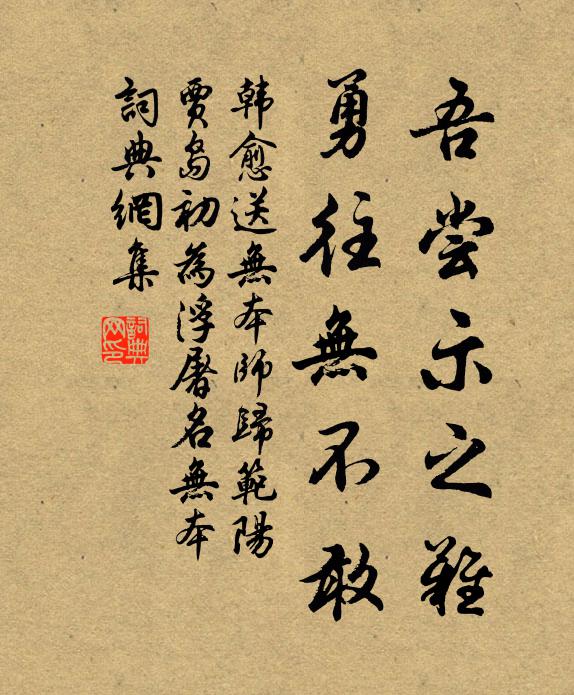 吾尝示之難
勇往無不敢
韩愈送無本師歸範陽
賈島初為浮屠名無本
詞典網集
詞典
网印